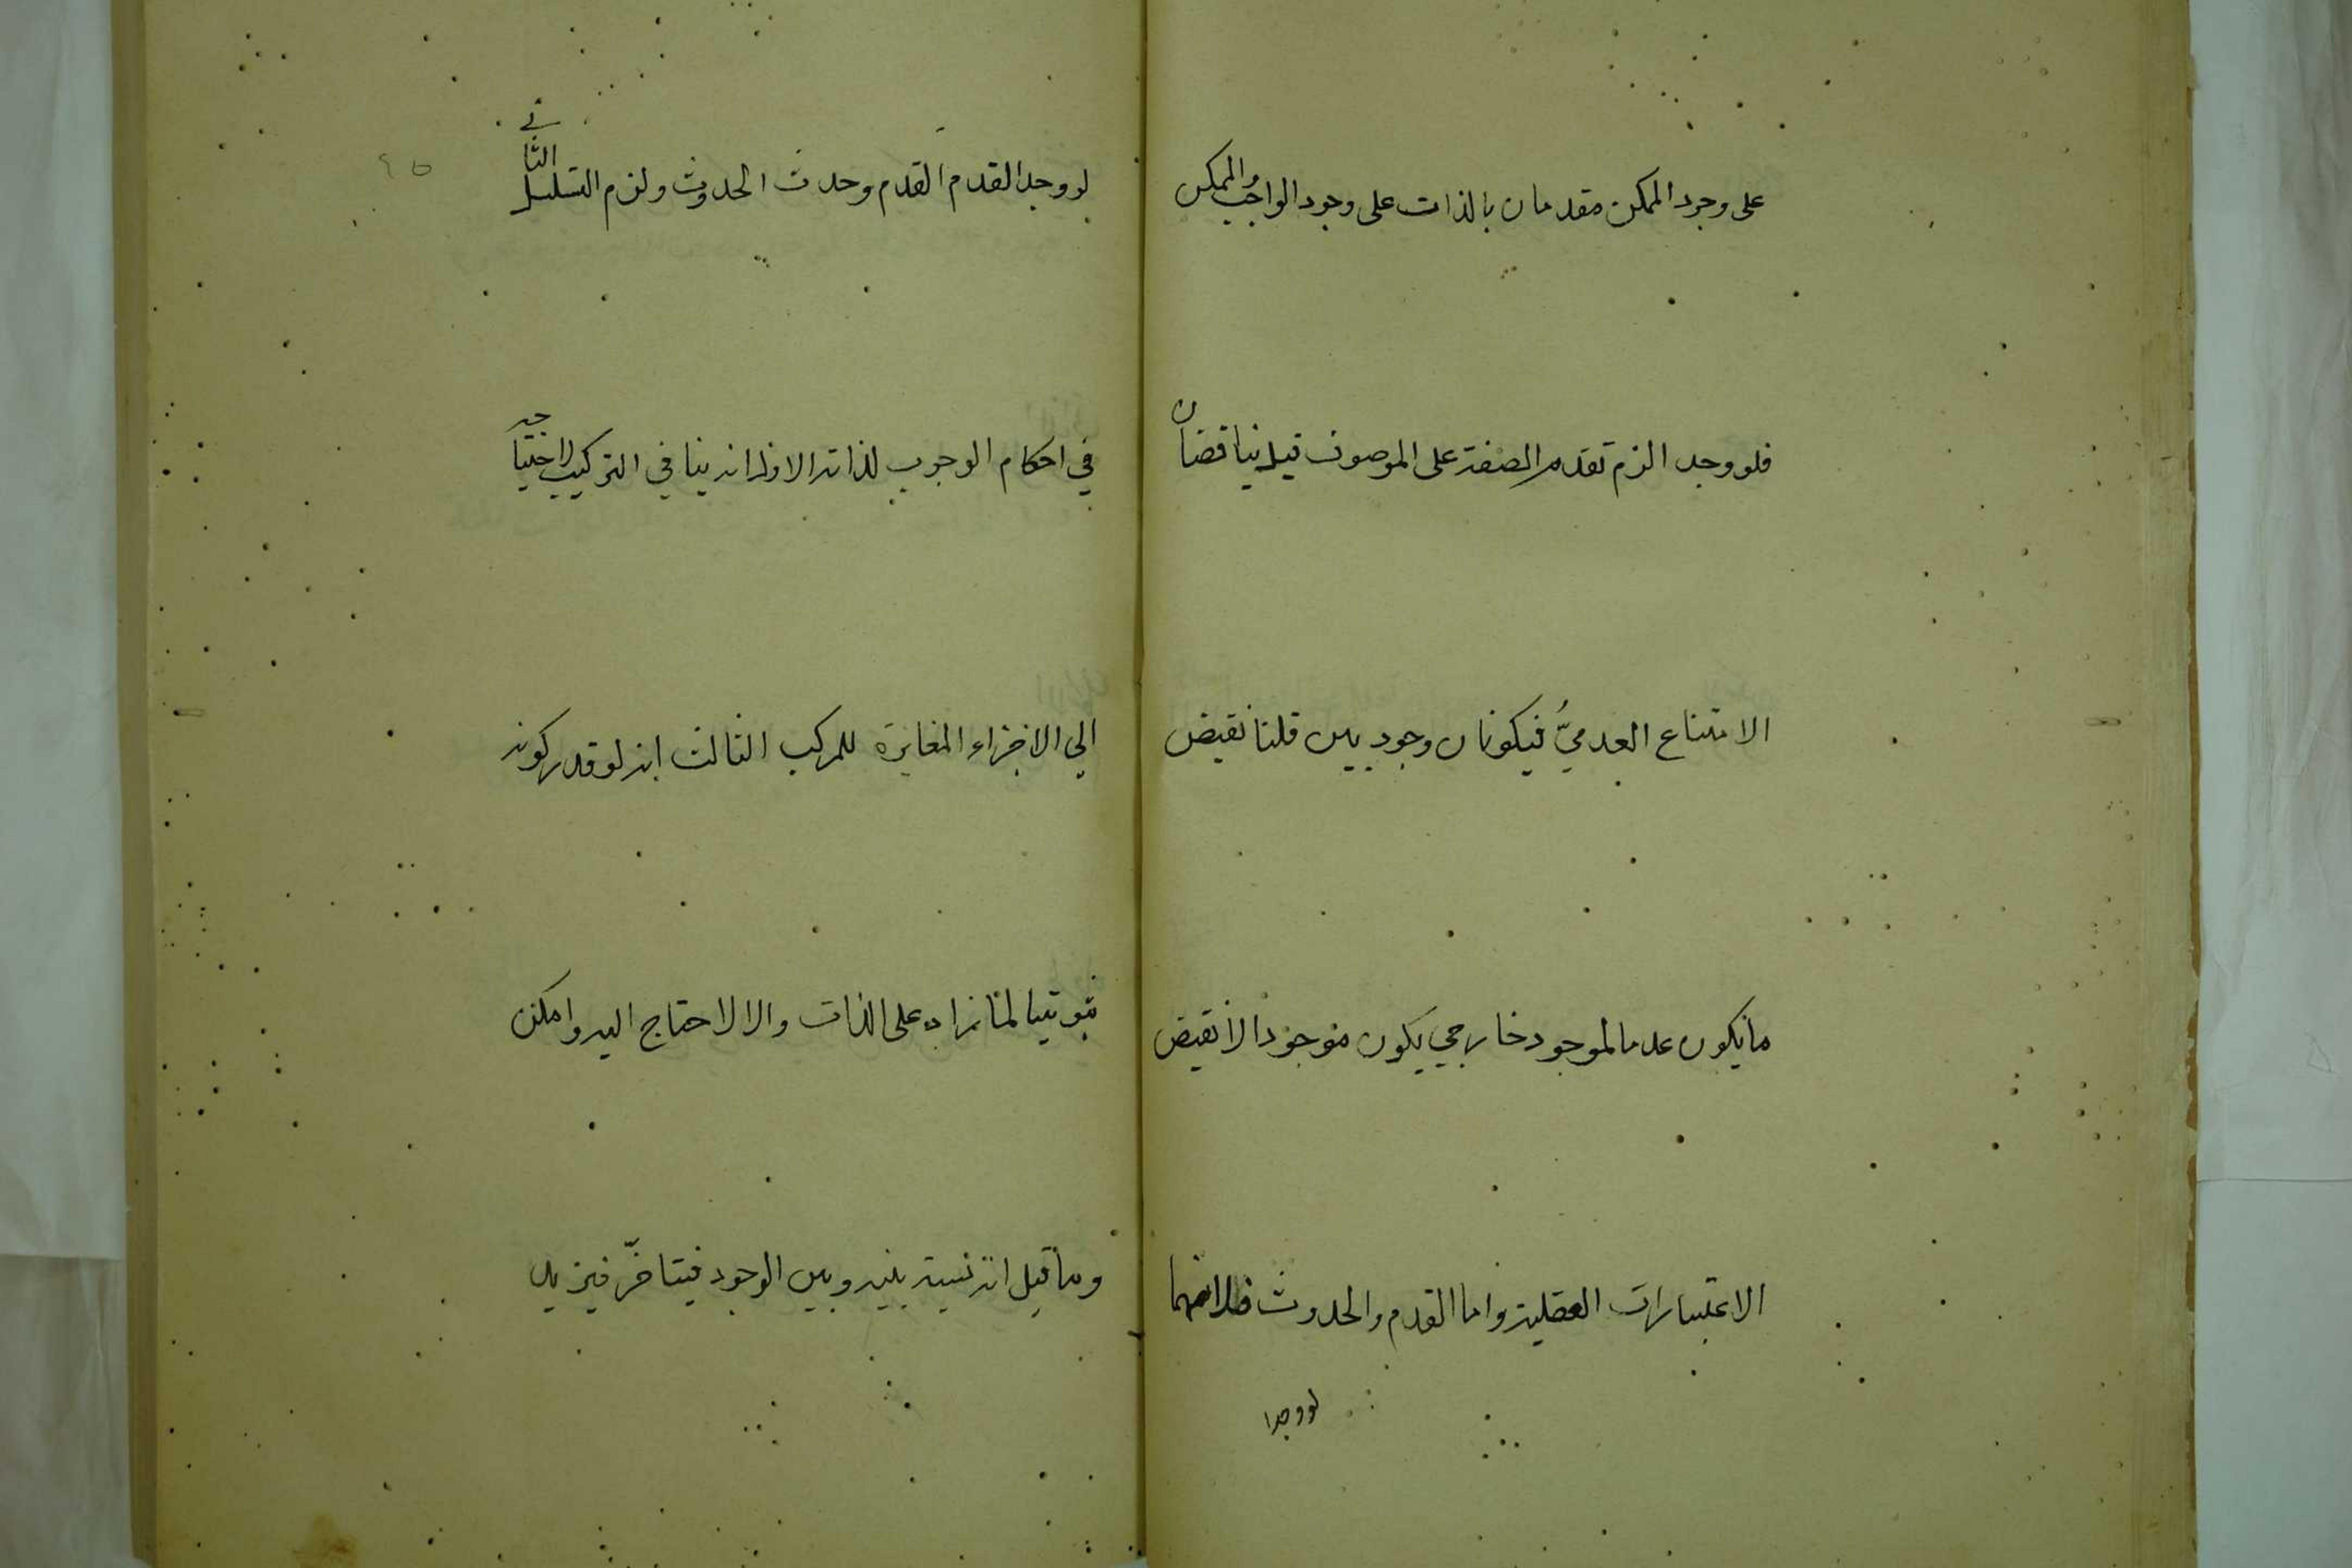 على وجود الممكن مقدمان بالذات على وجود الواجب والممكن
فلو وجد الزم تقدم الصفة على الموصوف قيل يناقضان
الامتناع العدميُّ فيكونان وجوديين قلنا نقيض
ما يكون عدما لموجود خارجي يكون موجودا لا نقيض
الاعتبارات العقلية واما القدم والحدوث فلانهما
لو وجدا
لو وجد القدم القدم وحدث الحدوث ولزم التسلسل الثاني
في احكام الوجوب لذاته الاول انه ينافي التركيب لاحتياجه
الي الاجزاء المغايرة للمركب الثالث انه لو قدر كونه
ثبوتيا لما زاد على الذات والا لاحتاج اليه وامكن
وما قيل انه نسبة بينه وبين الوجود فيتاخّر فيزيد
٤٥